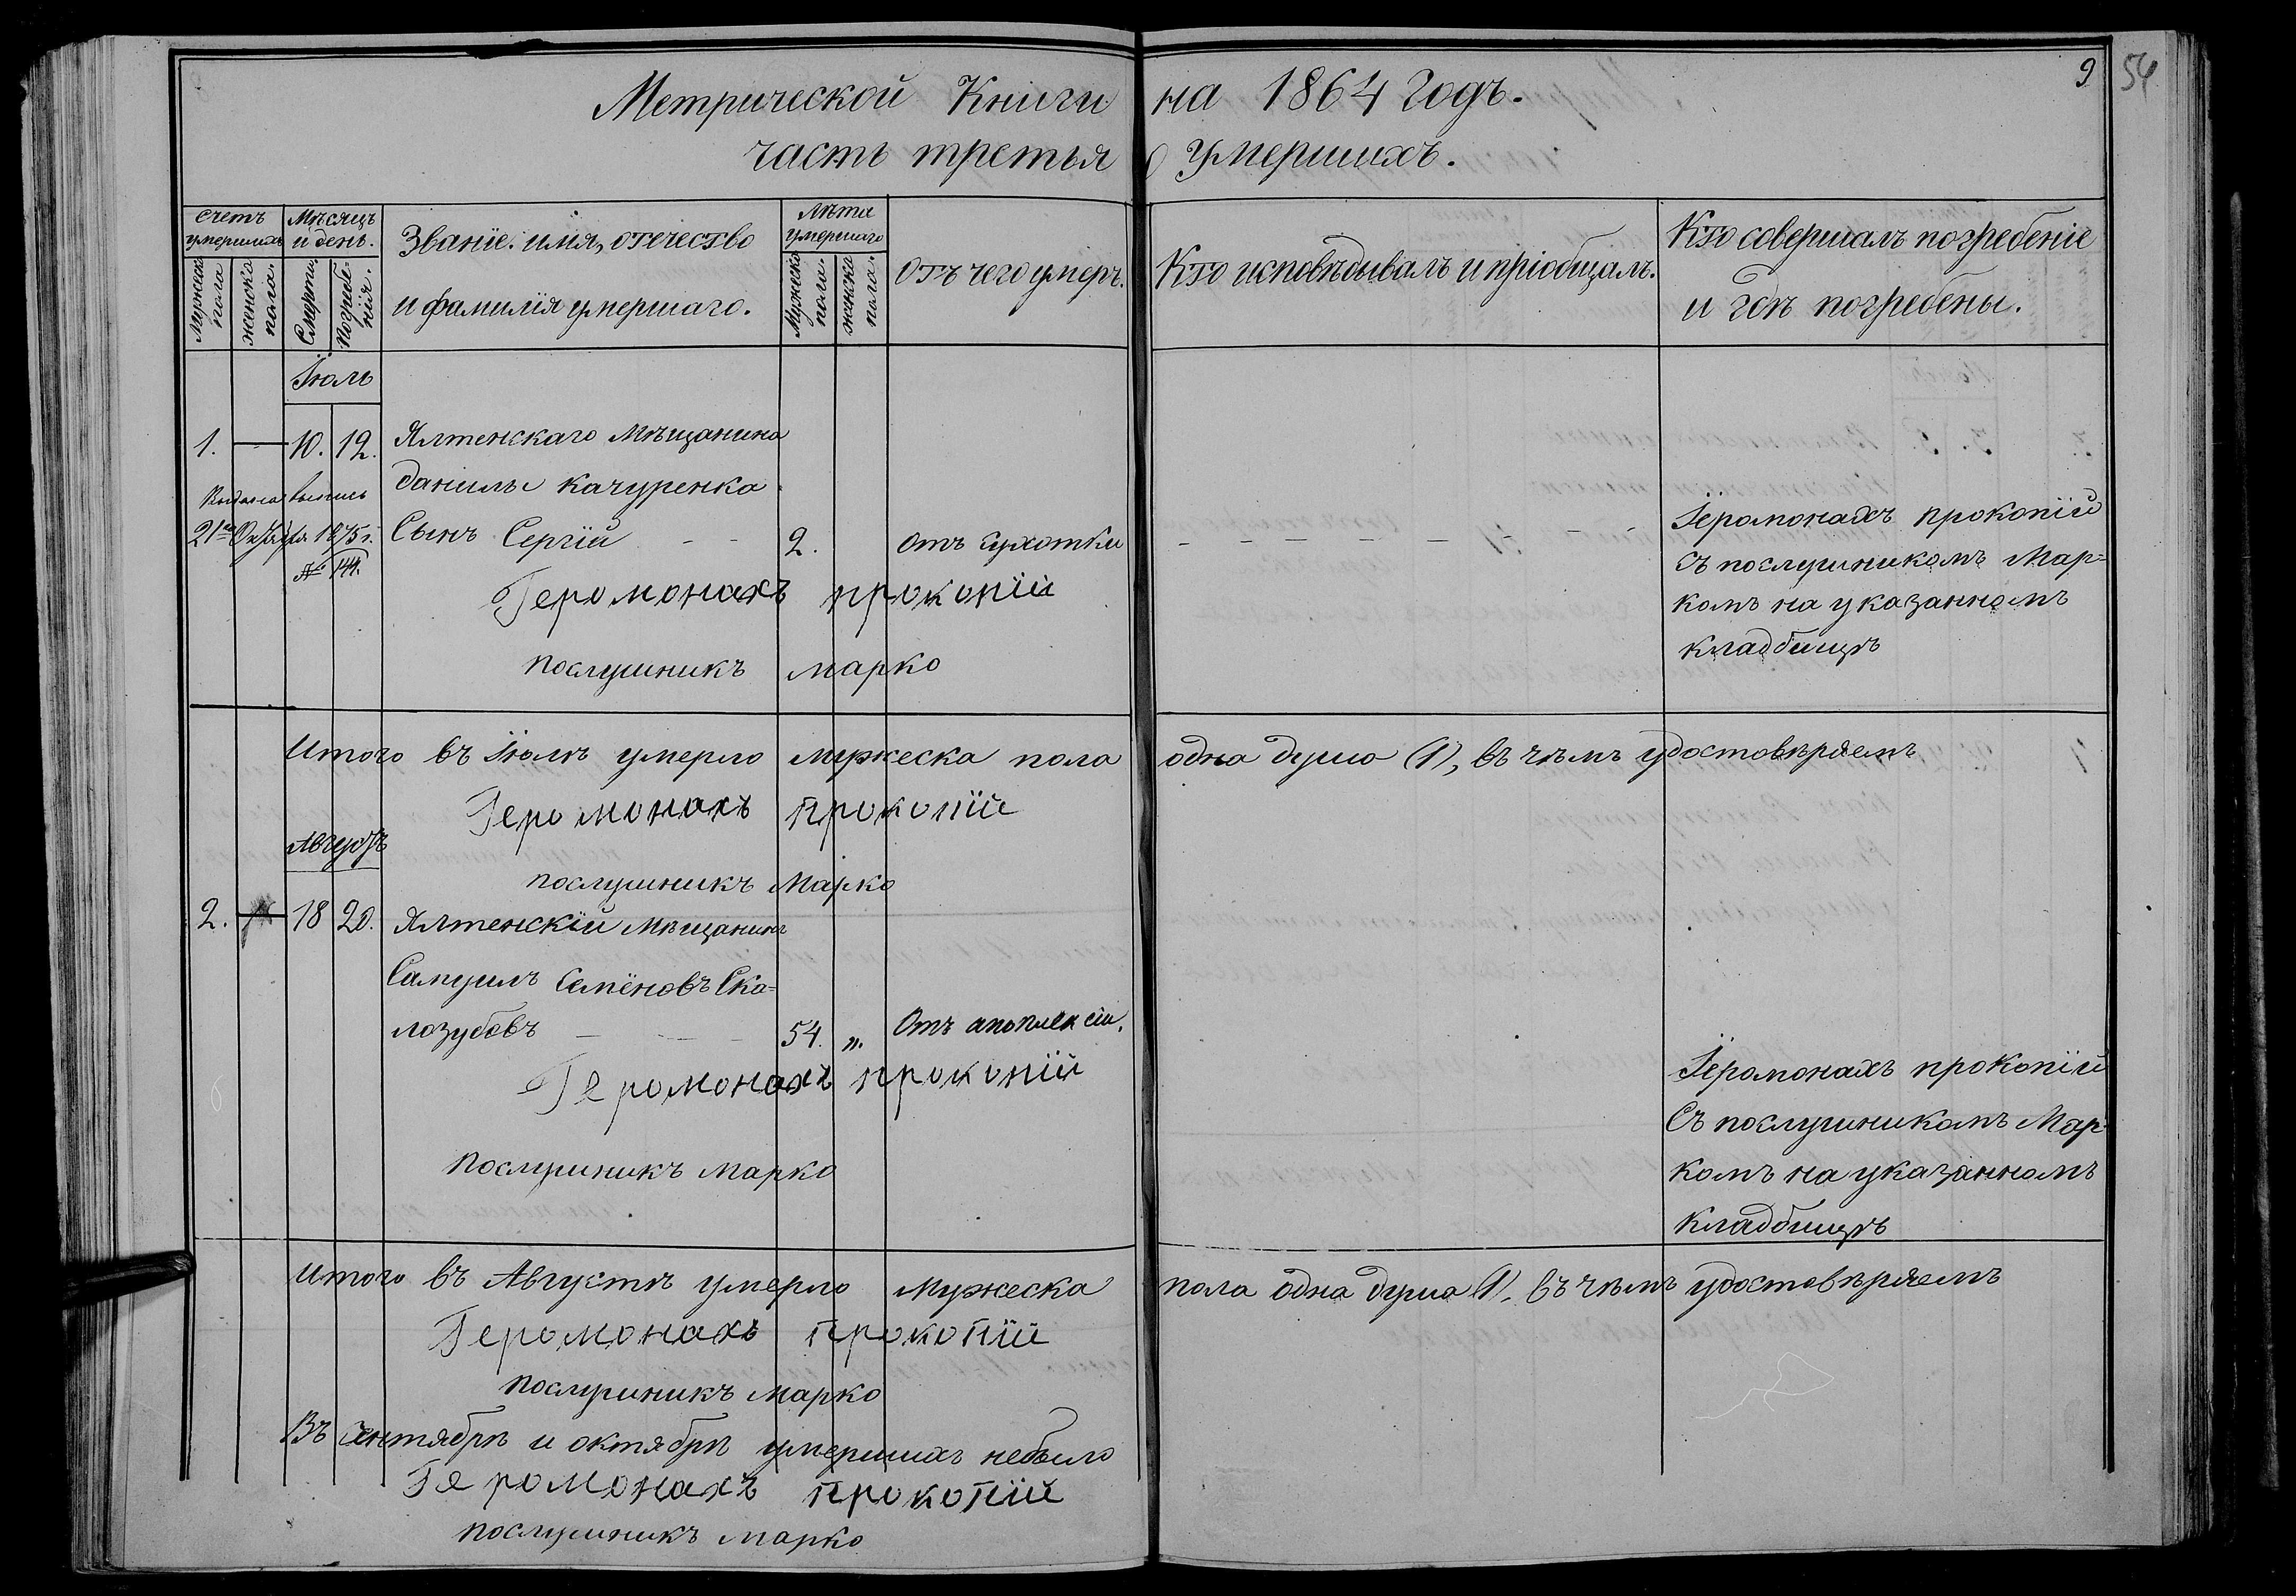 9 54
Метрической Книги на 1864 годъ.
часть третья о умершихъ.
счетъ умершихъ
Мужеска пола
женска пола.
Мѣсяцъ и день.
Смерти.
Погребенія.
Званіе. имя, отечество
и фамилія умершаго.
Лѣта умершаго
Мужеска пола.
женска пола.
Отъ чего умеръ.
Кто исповѣдывалъ и пріобщалъ.
Кто совершалъ погребеніе
и гдѣ погребены.
Іюль
1. — 10. 12. Ялтенскаго мѣщанина
Данилы Качуренка
Сынъ Сергій - - 2. отъ сухотки
Выдана выпись
21го Октября 1875 г.
№ 144.
Іеромонахъ прокопій
съ послушникомъ Мар=
комъ на указанномъ
кладбищѣ
Іеромонахъ прокопій
послушникъ марко
Итого въ Іюлѣ умерло мужеска пола одна душа (1), въ чѣмъ удостовѣряемъ
Іеромонахъ прокопій
послушникъ Марко
Августъ
2. — 18 20. Ялтенскій мѣщанинъ
Самуилъ Семёновъ Ска=
лозубовъ - - - 54. „ Отъ апоплексіи.
Іеромонахъ прокопій
Съ послушникомъ Мар-
комъ на указанномъ
кладбищѣ
Іеромонахъ прокопій
послушникъ марко
Итого въ Августѣ умерло Мужеска пола одна душа (1), въ чѣмъ удостовѣряемъ
Іеромонахъ прокопій
послушникъ марко
Въ сентябрѣ и октябрѣ умершихъ небыло
Іеромонахъ прокопій
послушникъ марко